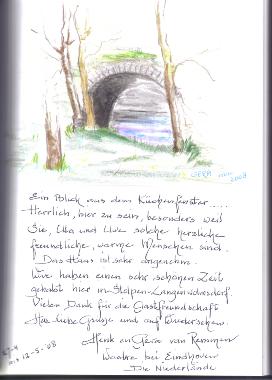 GERA mei 2008
Ein Blick aus dem Küchenfenster.....
Herrlich, hier zu sein, besonders weil
Sie, Ulla und Uwe solche herzliche
freundliche, warme Menschen sind.
Das Haus ist sehr angenehm.
Wir haben einen sehr schönen Zeit
gehabt hier in Stolpen-Langenwolmsdorf.
Vielen Dank für die Gastfreundschaft
Herz liebe Grüsse und auf Wiedersehen.
Henk en Gera van
Waalre bei Eindhoven
Die Niederlande
12-5-'08